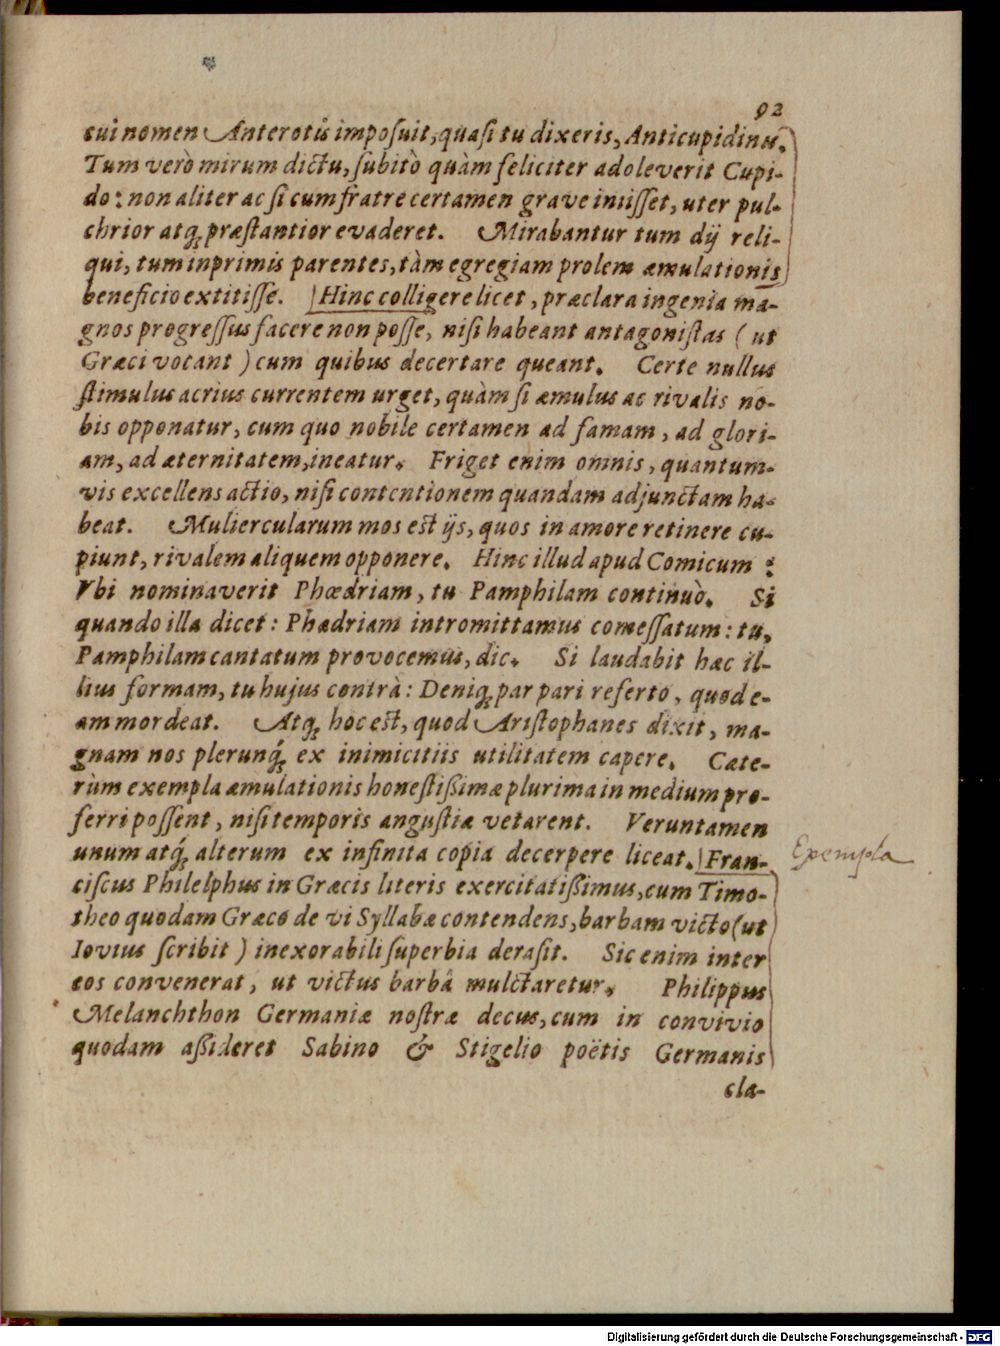 92
cui nomen Anterotis imposuit, quasi tu dixeris, Anticupidinis.
Tum verò mirum dictu, subitò quàm feliciter adoleverit Cupi-
do: non aliter ac si cum fratre certamen grave iniisset, uter pul-
chrior atq; præstantior evaderet. Mirabantur tum dij reli-
qui, tum inprimis parentes, tàm egregiam prolem æmulationis
beneficio extitisse. Hinc colligere licet, præclara ingenia ma-
gnos progressus facere non posse, nisi habeant antagonistas (ut
Græci vocant) cum quibus decertare queant. Certe nullus
stimulus acrius currentem urget, quàm si æmulus ac rivalis no-
bis opponatur, cum quo nobile certamen ad famam, ad glori-
am, ad æternitatem, ineatur. Friget enim omnis, quantum-
vis excellens actio, nisi contentionem quandam adjunctam ha-
beat. Muliercularum mos est ijs, quos in amore retinere cu-
piunt, rivalem aliquem opponere. Hinc illud apud Comicum:
Vbi nominaverit Phœdriam, tu Pamphilam continuò. Si
quando illa dicet: Phædriam intromittamus comessatum: tu,
Pamphilam cantatum provocemus, dic. Si laudabit hæc il-
lius formam, tu hujus contrà: Deniq; par pari referto, quod e-
am mordeat. Atq; hoc est, quod Aristophanes dixit, ma-
gnam nos plerunq́; ex inimicitiis utilitatem capere. Cæte-
rùm exempla æmulationis honestißimæ plurima in medium pro-
ferri possent, nisi temporis angustiæ vetarent. Veruntamen
unum atq́; alterum ex infinita copia decerpere liceat. Fran-
Exempla
ciscus Philelphus in Græcis literis exercitatißimus, cum Timo-
theo quodam Græco de vi Syllabæ contendens, barbam victo (ut
Iovius scribit) inexorabili superbia derasit. Sic enim inter
eos convenerat, ut victus barbâ mulctaretur. Philippus
Melanchthon Germaniæ nostræ decus, cum in convivio
quodam aßideret Sabino & Stigelio poëtis Germanis
cla-
Digitalisierung gefördert durch die Deutsche Forschungsgemeinschaft - DFG